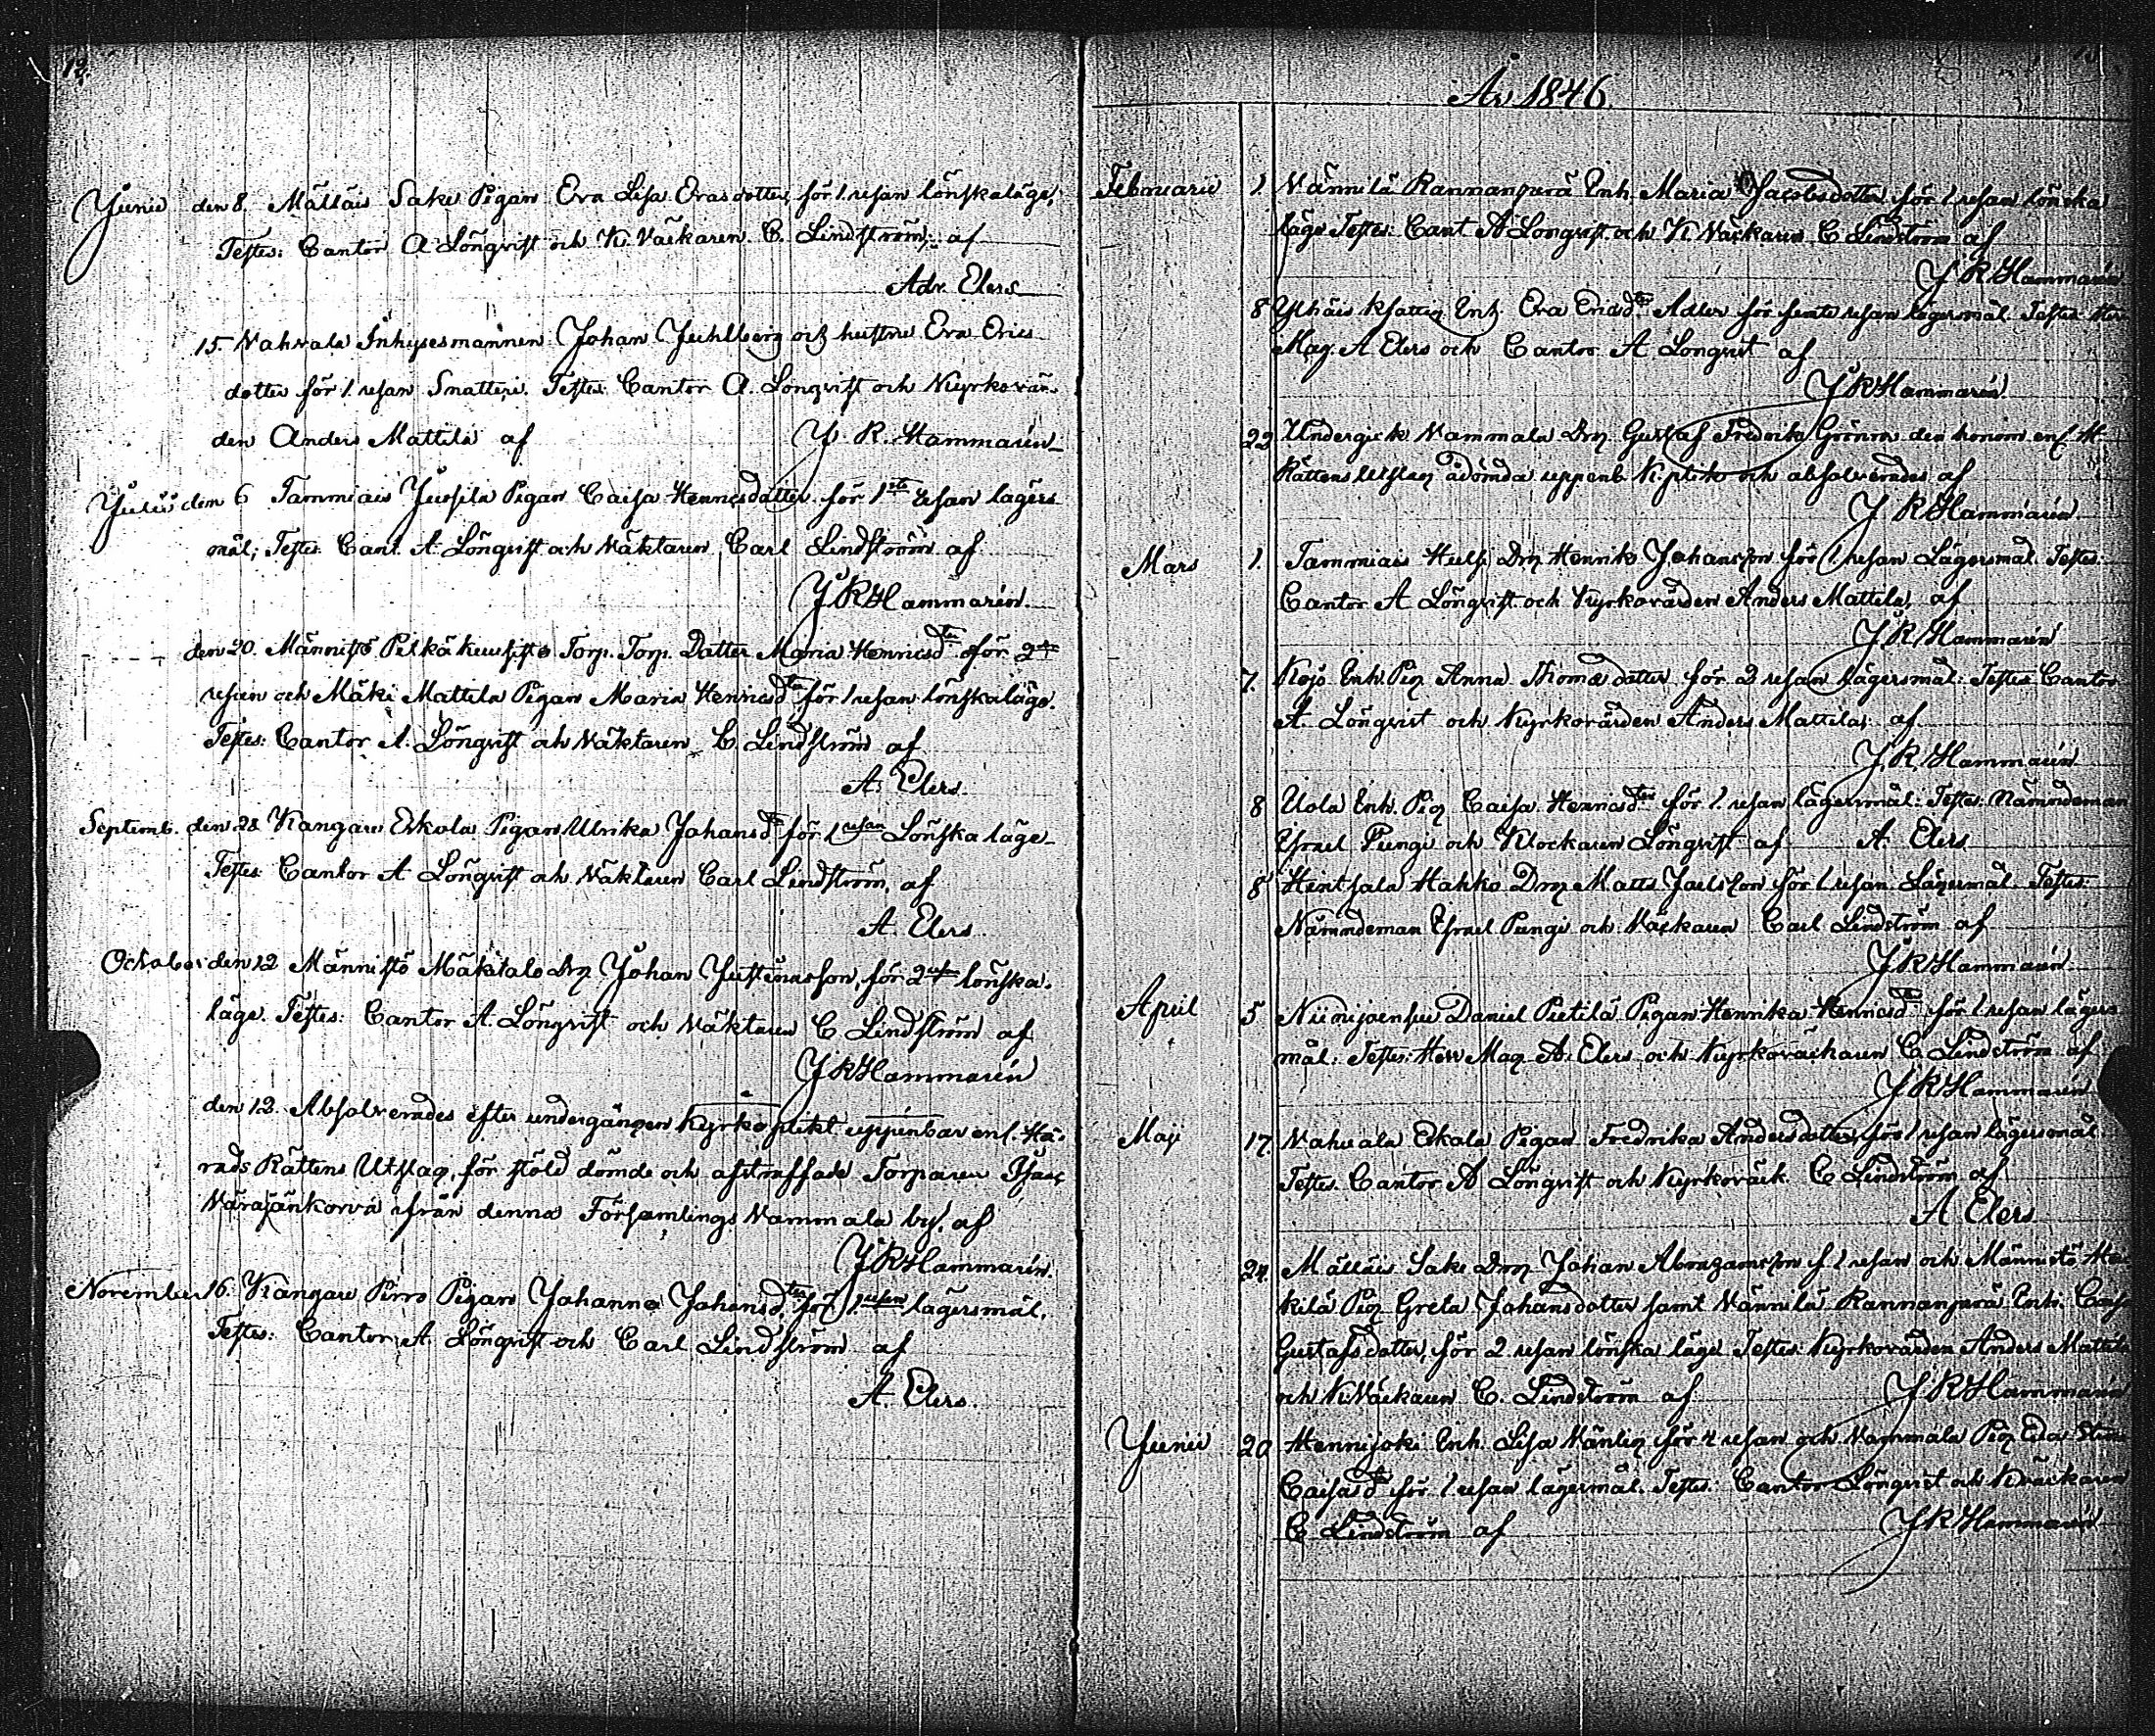 12.
Junii den 8. Mällais Sake Pigan Eva Lisa Evasdotter, för 1. resan lönskaläge,
Testes: Cantor A Lönqvist och K. Väckaren C. Lindström, af
Adr. Elers
15. Nahvala Inhysesmannen Johan Juhlberg och hustru Eva Erics
dotter för 1. resan Snatteri. Testes Cantor A. Lönqvist och Kyrkovär-
den Anders Mattila af J. R. Hammarén
Julii den 6 Tammiais Jussila Pigan Caisa Henricsdotter för 1sta resan lägers
mål; Testes. Cant. A. Lönqvist och Väktaren Carl Lindström af
J R Hammarén.
den 20. Männistö Torp. Torp. Dotter Maria Henricsdter för 2dra
resan och Mäki Mattila Pigan Maria Henricsdter för 1 resan lönskaläge.
Testes: Cantor A. Lönqvist och Väktaren C. Lindström af
A. Elers.
Septemb. den 28 Kangais Eskola Pigan Ulrika Johansdr för 1 resan Lönska läge
Testes Cantor A Lönqvist och Väktaren Carl Lindström, af
A. Elers
October den 12 Männistö Mäkitalo Drg Johan för 2 resan lönska-
läge. Testes: Cantor A. Lönqvist och Väktaren C Lindström af
J R Hammarén
den 12. Absolverades efter undergången kyrkoplikt uppenbar enl. Hä-
rads Rättens Utslag, för stöld dömde och afstraffade Torparen Isaac
från denna Församlings Nammala by, af
J R Hammarén.
November 16. Kangais Pirro Pigan Johanna Johansdter för 1 resan lägersmål.
Testes: Cantor A. Lönqvist och Carl Lindström af
A. Elers.
År 1846.
Februarii 1. Männilä Rannanperä Enh. Maria Jacobsdotter för 1 resan lönska
läge Testes: Cant A Lönqvist och K Väckaren C Lindström af
J R Hammarén
8 Enh. Eva Ericsdter Adler för resan lägersmål Testes Herr
Mag. A Elers och Cantor A Lönqvist af
J R Hammarén.
22 Undergick Nammala Drg Gustaf Fredrik Grönroos den honom enl. H.
Rättens Utslag ådömda uppenb. K. plikt och absolverades af
J R Hammarén.
Mars 1. Tammiais Drg Henrik Johansson för 1 resan Lägersmål Testes:
Cantor A Lönqvist och Kyrkovärden Anders Mattila, af
J R Hammarén
7. Kojo Enh. Pig Anna Thomasdotter för 2 resan lägersmål: Testes Cantor
A. Lönqvist och Kyrkovärden Anders Mattila, af
J. R. Hammarén.
8 Uola Enh. Pig Caisa Henricsdter för 1. resan lägersmål: Testes: Nämndeman
Israel Pungi och Klockaren Lönqvist af A. Elers
8 Heintsala Hakko Drg Matts Joelsson för 1 resan Lägersmål Testes
Nämndeman Israel Pungi och Väckaren Carl Lindström af
J R Hammarén
April 5 Niinijoensuu Daniel Pietilä Pigan Henrika Henricsdter för 1 resan lägers
mål: Testes: Herr Mag A. Elers och Kyrkoväckaren C Lindström af
J R Hammarén
Maji 17. Nahvala Eskola Pigan Fredrika Andersdotter för 1 resan lägersmål.
Testes. Cantor A Lönqvist och Kyrkoväck. C Lindström af
A Elers
24. Mällais Sake Drg Johan Abrahamsson f. 1 resan och Männistö
kilä Pig Greta Johansdotter samt Männilä Rannanperä Enh.
Gustafsdotter, för 2 resan lönska läge Testes: Kyrkovärden Anders Mattila
och K. Väckaren C. Lindström af J. R Hammarén
Junii 20 Hennijoki Enh. Lisa för resan och Nammala Pig
Caisasdter för 1 resan lägersmål. Testes: Cantor Lönqvist och K väckaren
C Lindström af J R Hammarén